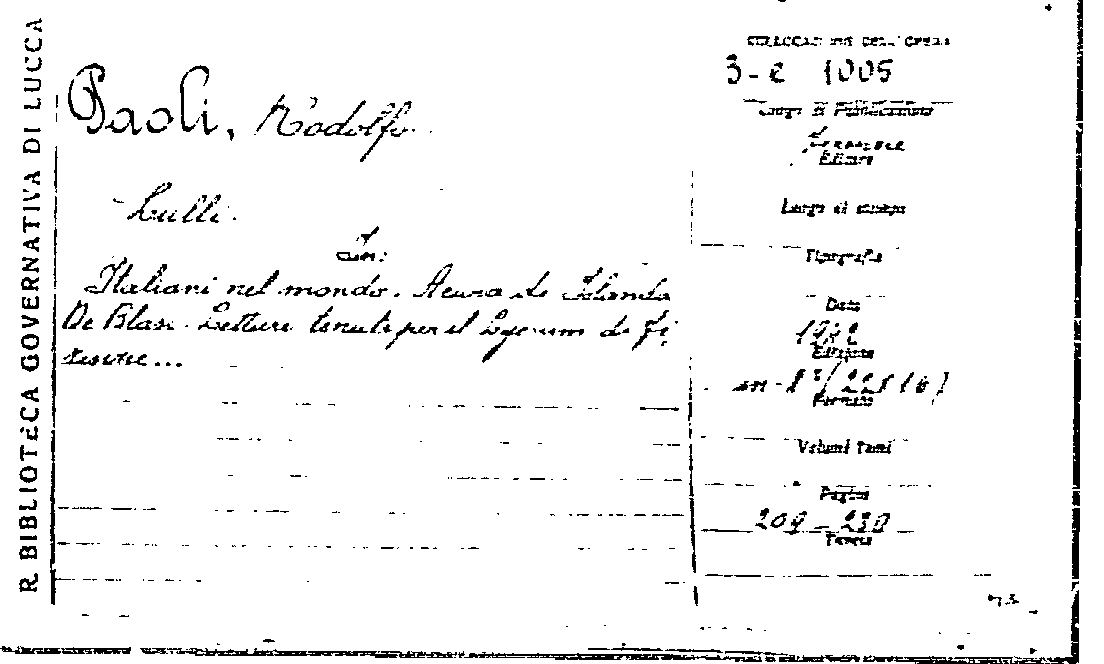 R. BIBLIOTECA GOVERNATIVA DI LUCCA
Paoli, Rodolfo.
Lulli.
In:
Italiani nel mondo. A cura di Jolanda
De Blasi. Letture tenute per il Lyceum di Fi
renze...
COLLOCAZIONE DELL'OPERA
3-e 1005
Luogo di Pubblicazione
Firenze
Editore
Luogo di stampa
Tipografia
Data
1942
Edizione
in-8°
Formato
Volumi Tomi
Pagine
209-230